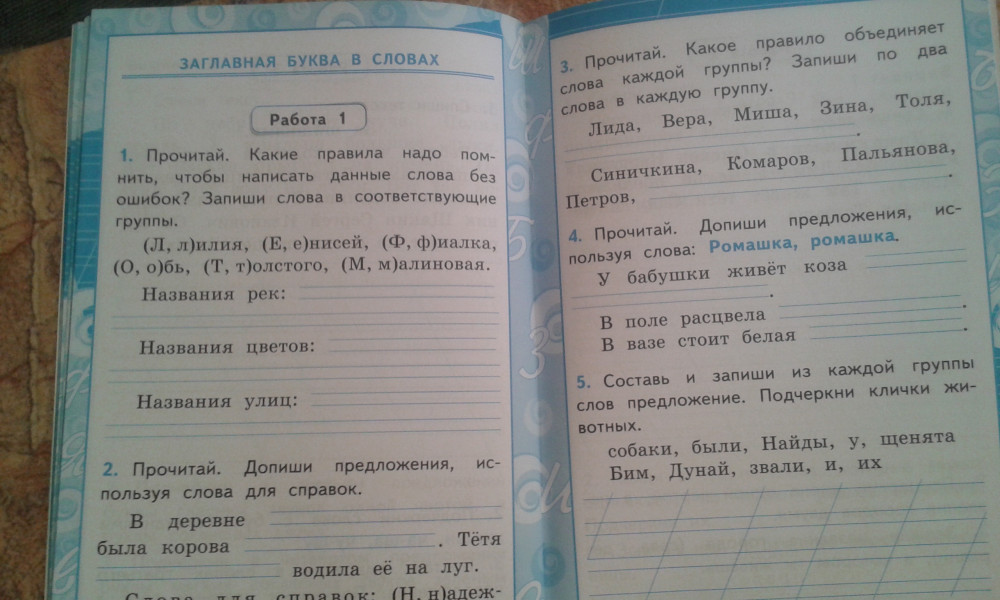 ЗАГЛАВНАЯ БУКВА В СЛОВАХ
Работа 1
1. Прочитай. Какие правила надо пом-
нить, чтобы написать данные слова без
ошибок? Запиши слова в соответствующие
группы.
(Л, л)илия, (Е, е)нисей, (Ф, ф)иалка,
(О, о)бь, (Т, т)олстого, (М, м)алиновая.
Названия рек:
Названия цветов:
Названия улиц:
2. Прочитай. Допиши предложения, ис-
пользуя слова для справок.
В деревне
была корова . Тётя
водила её на луг.
Слова для справок: (Н, н)адеж-
3. Прочитай. Какое правило объединяет
слова каждой группы? Запиши по два
слова в каждую группу.
Лида, Вера, Миша, Зина, Толя,
.
Синичкина, Комаров, Пальянова,
Петров, .
4. Прочитай. Допиши предложения, ис-
пользуя слова: Ромашка, ромашка.
У бабушки живёт коза
.
В поле расцвела .
В вазе стоит белая .
5. Составь и запиши из каждой группы
слов предложение. Подчеркни клички жи-
вотных.
собаки, были, Найды, у, щенята
Бим, Дунай, звали, и, их